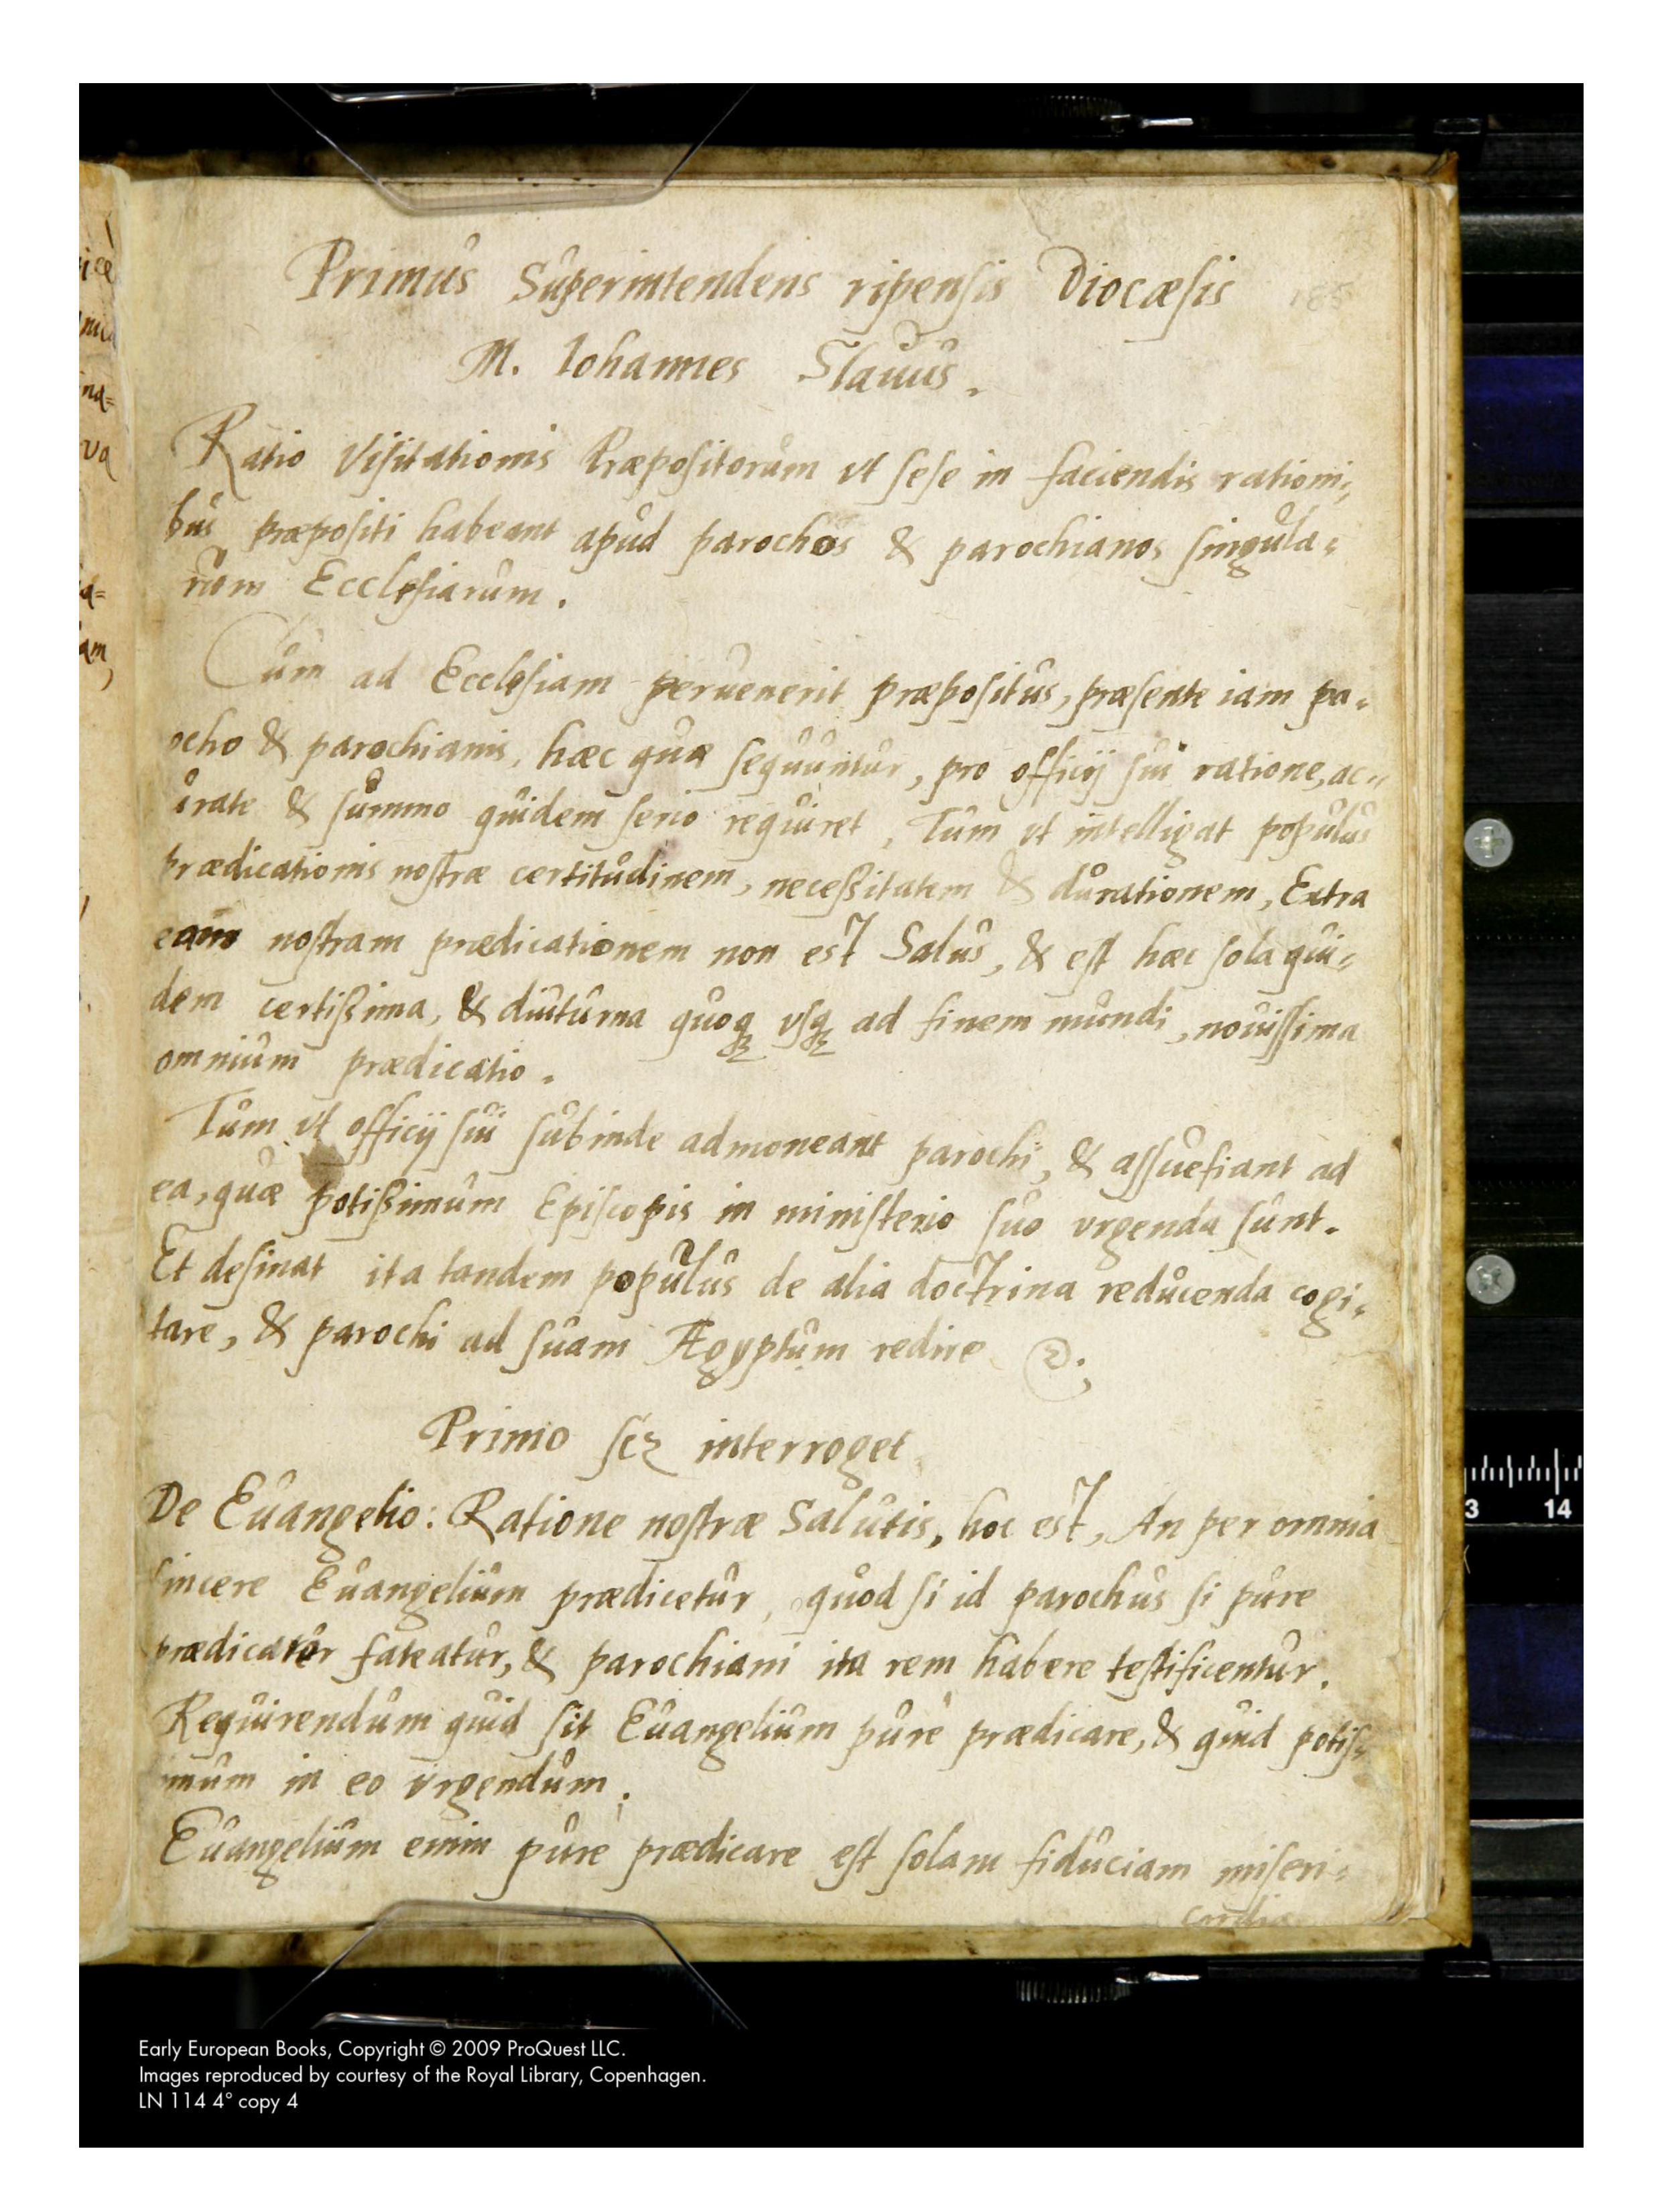 Primus Superintendens ripensis Diocæsis 185
M. Iohannes Slauus.
Ratio Visitationis Præpositorum vt sese in faciendis rationi=
bus præpositi habeant apud parochos & parochianos singula=
rum Ecclesiarum.
Cum ad Ecclesiam peruenerit præpositus, præsente iam pa=
ocho & parochianis, hæc quæ sequuntur, pro officij sui ratione, ac=
urate & summo quidem serio requiret, Tum vt intelligat populus
prædicationis nostræ certitudinem, neceßitatem & durationem, Extra
eam nostram prædicationem non est Salus, & est hæc sola qui=
dem certißima, & diuturna quoqꝫ vsqꝫ ad finem mundi, nouissima
omnium prædicatio.
Tum vt officij sui subinde admoneant parochi, & assuefiant ad
ea, quæ potißimum Episcopis in ministerio suo vrgenda sunt.
Et desinat ita tandem populus de alia doctrina reducenda cogi=
tare, & parochi ad suam Ægyptum redire
Primo scꝫ interroget
De Euangelio: Ratione nostræ Salutis, hoc est, An per omnia
sincere Euangelium prædicetur, quod si id parochus si pure
prædicatur fateatur, & parochiani ita rem habere testificentur.
Requirendum quid sit Euangelium pure prædicare, & quid potis=
mum in eo vrgendum.
Euangelium enim pure prædicare est solam fiduciam miseri=
cordiæ
ice
na=
va
a=
am,
3 14
Early European Books, Copyright © 2009 ProQuest LLC.
Images reproduced by courtesy of the Royal Library, Copenhagen.
LN 114 4° copy 4